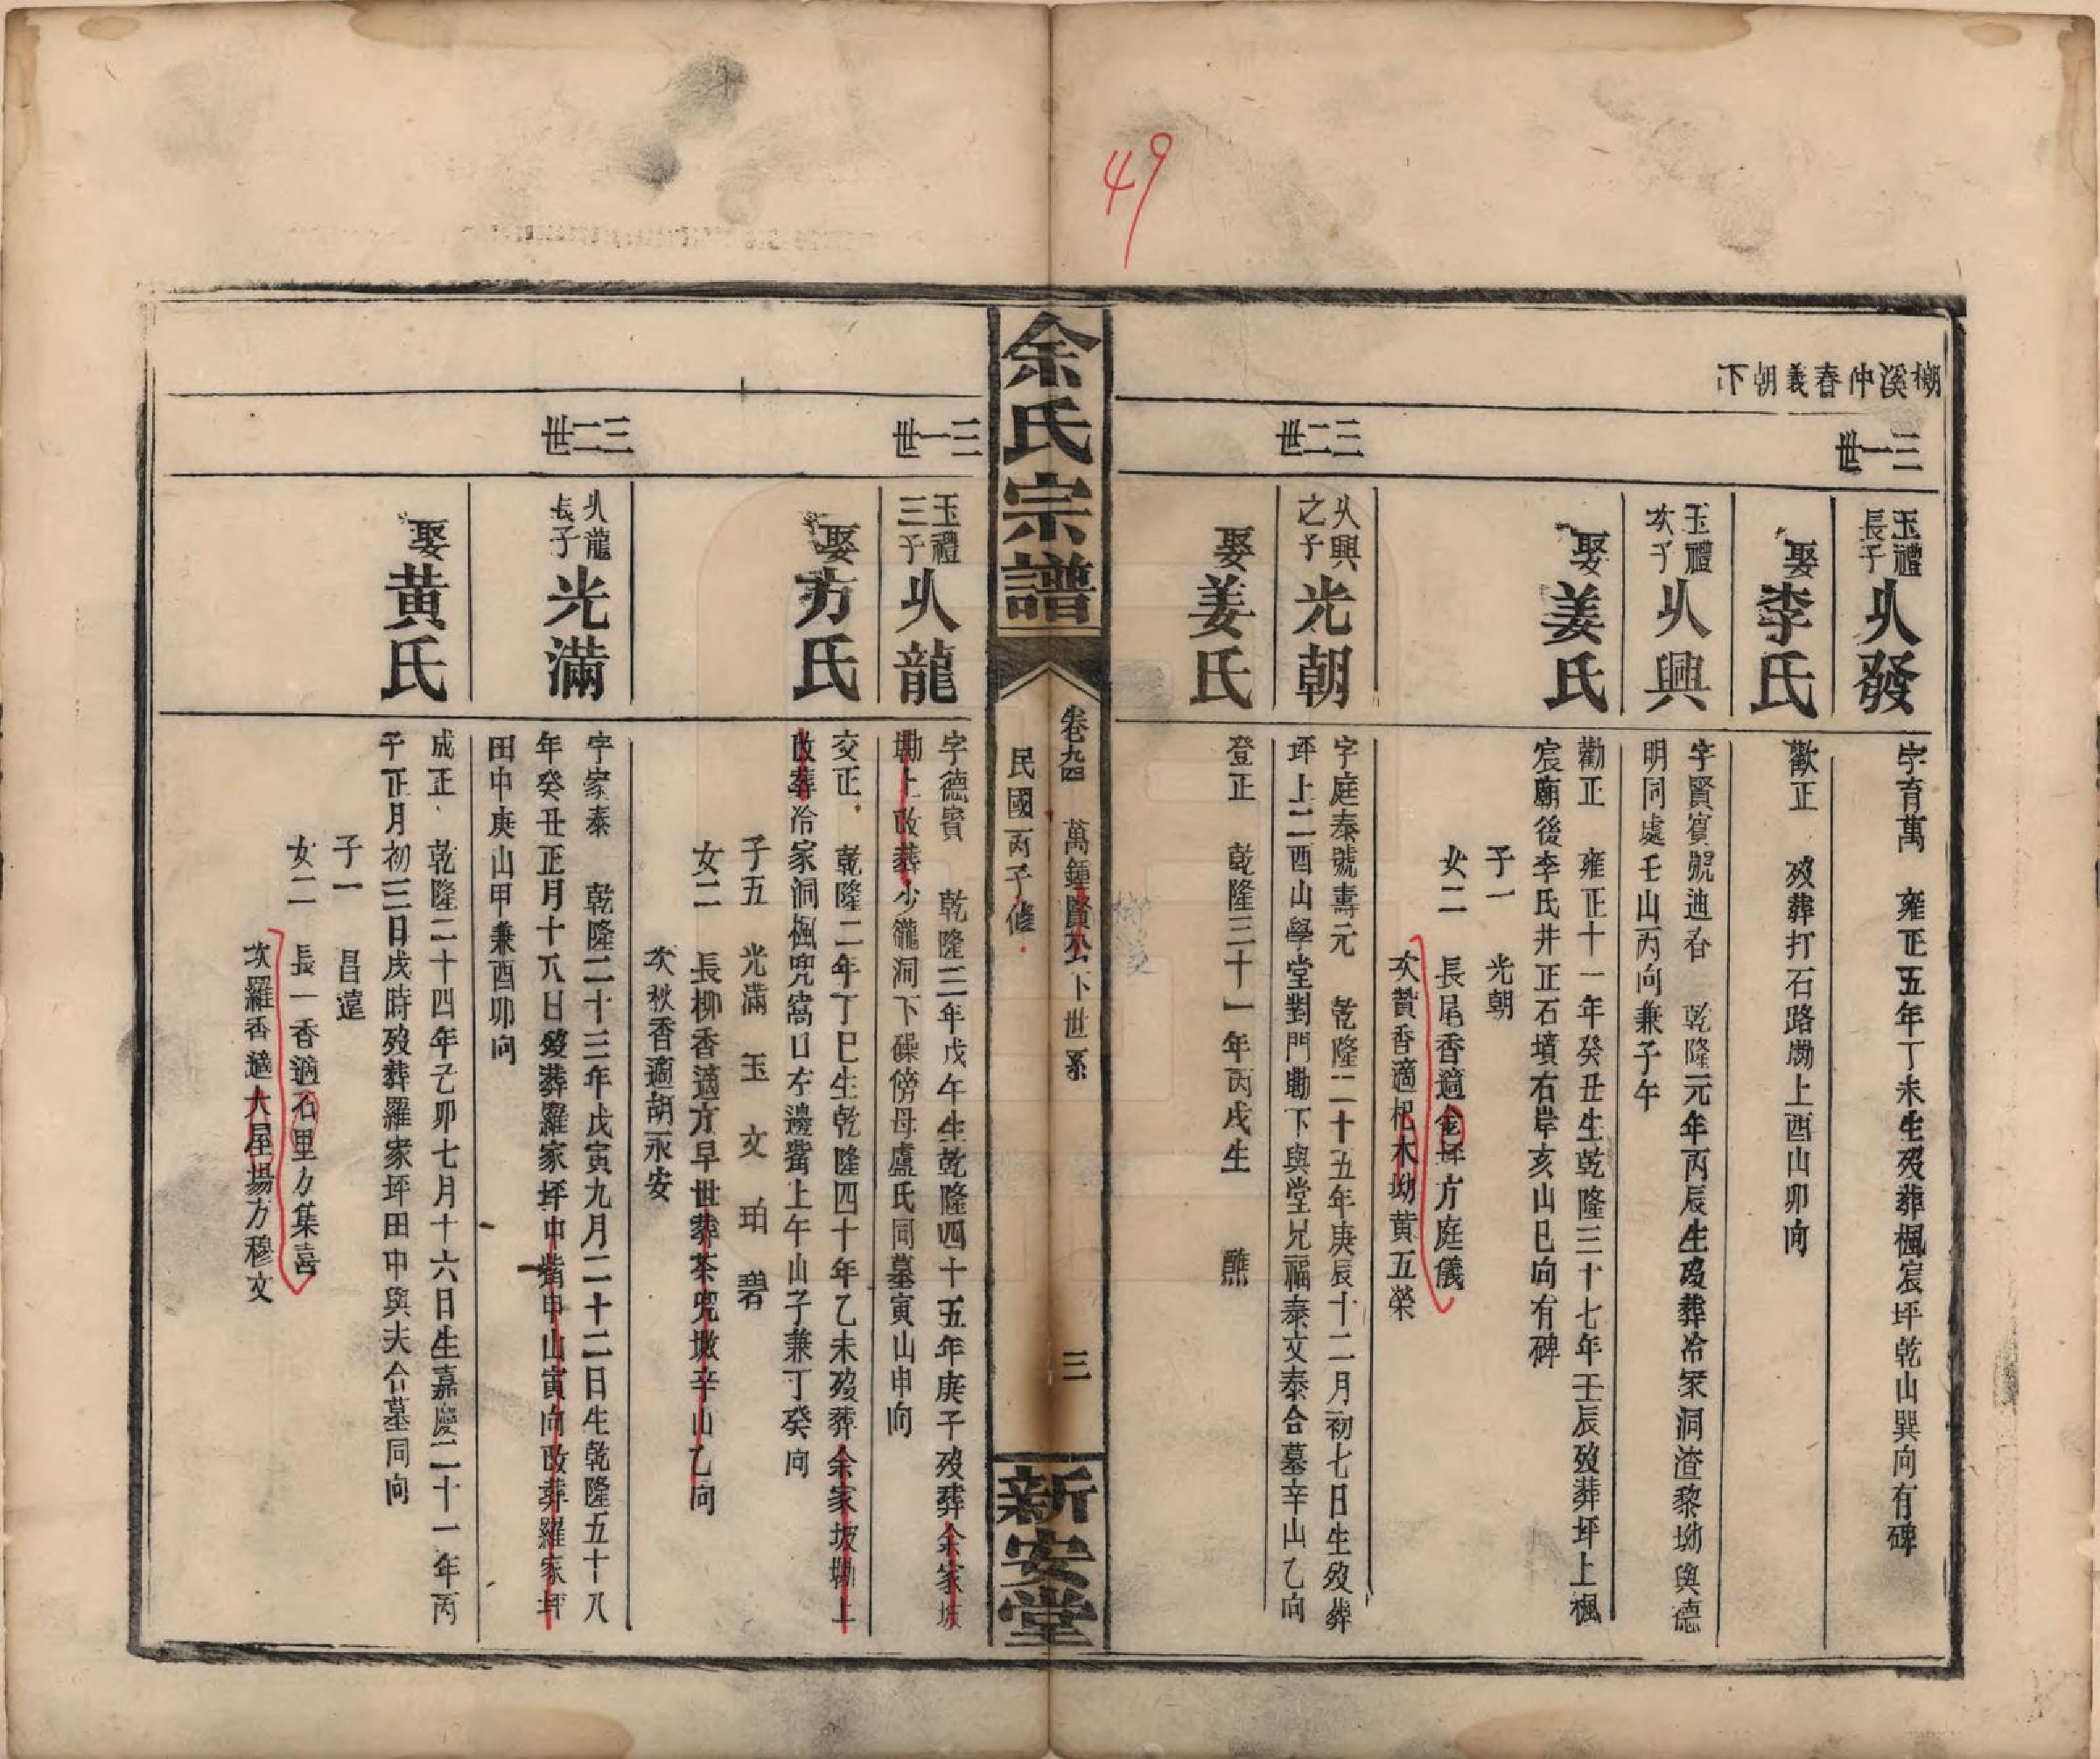 49
樹溪仲春義朝下
三一世
玉禮長子 㸔發
字育萬 雍正五年丁未生歿葬楓宸坪乾山巽向有碑
娶李氏
歡正 歿葬打石路勘上酉山卯向
玉禮次子 興
字賢賓號迪吞 乾隆元年丙辰生歿葬冷家洞渣黎坳與德
明同處壬山丙向兼子午
娶姜氏
勸正 雍正十一年癸丑生乾隆三十七年壬辰歿葬坪上楓
宸廟後李氏井正石墳右岸亥山巳向有碑
子一 光朝
女二 長尾香適金坪方庭儀
次贊香適杞木坳黄五榮
三二世
興之子 光朝
字庭泰號壽元 乾隆二十五年庚辰十二月初七日生歿葬
坪上二酉山學堂對門勘下與堂兄福泰文泰合墓辛山乙向
娶姜氏
登正 乾隆三十一年丙戌生 醮
余氏宗譜
卷九四 萬鍾賢公下世系 三
民國丙子修
新安堂
三一世
玉禮三子 龍
字德賓 乾隆三年戊午生乾隆四十五年庚子歿葬余家坡
勘上改葬少籠洞下磉傍母盧氏同墓寅山申向
娶方氏
交正 乾隆二年丁巳生乾隆四十年乙未歿葬余家坡勘上
改葬冷家洞楓兜窩口左邊嘴上午山子兼丁癸向
子五 光滿 玉 文 珀 碧
女二 長柳香適方早世葬茶兜墩辛山乙向
次秋香適胡永安
三二世
龍長子 光滿
字家泰 乾隆二十三年戊寅九月二十二日生乾隆五十八
年癸丑正月十八日歿葬羅家坪中嘴申山寅向改葬羅家坪
田中庚山甲兼酉卯向
娶黄氏
成正 乾隆二十四年己卯七月十六日生嘉慶二十一年丙
子正月初三日戌時歿葬羅家坪田中與夫合墓同向
子一 昌遠
女二 長一香適石里方集喜
次羅香適大屋場方穆文